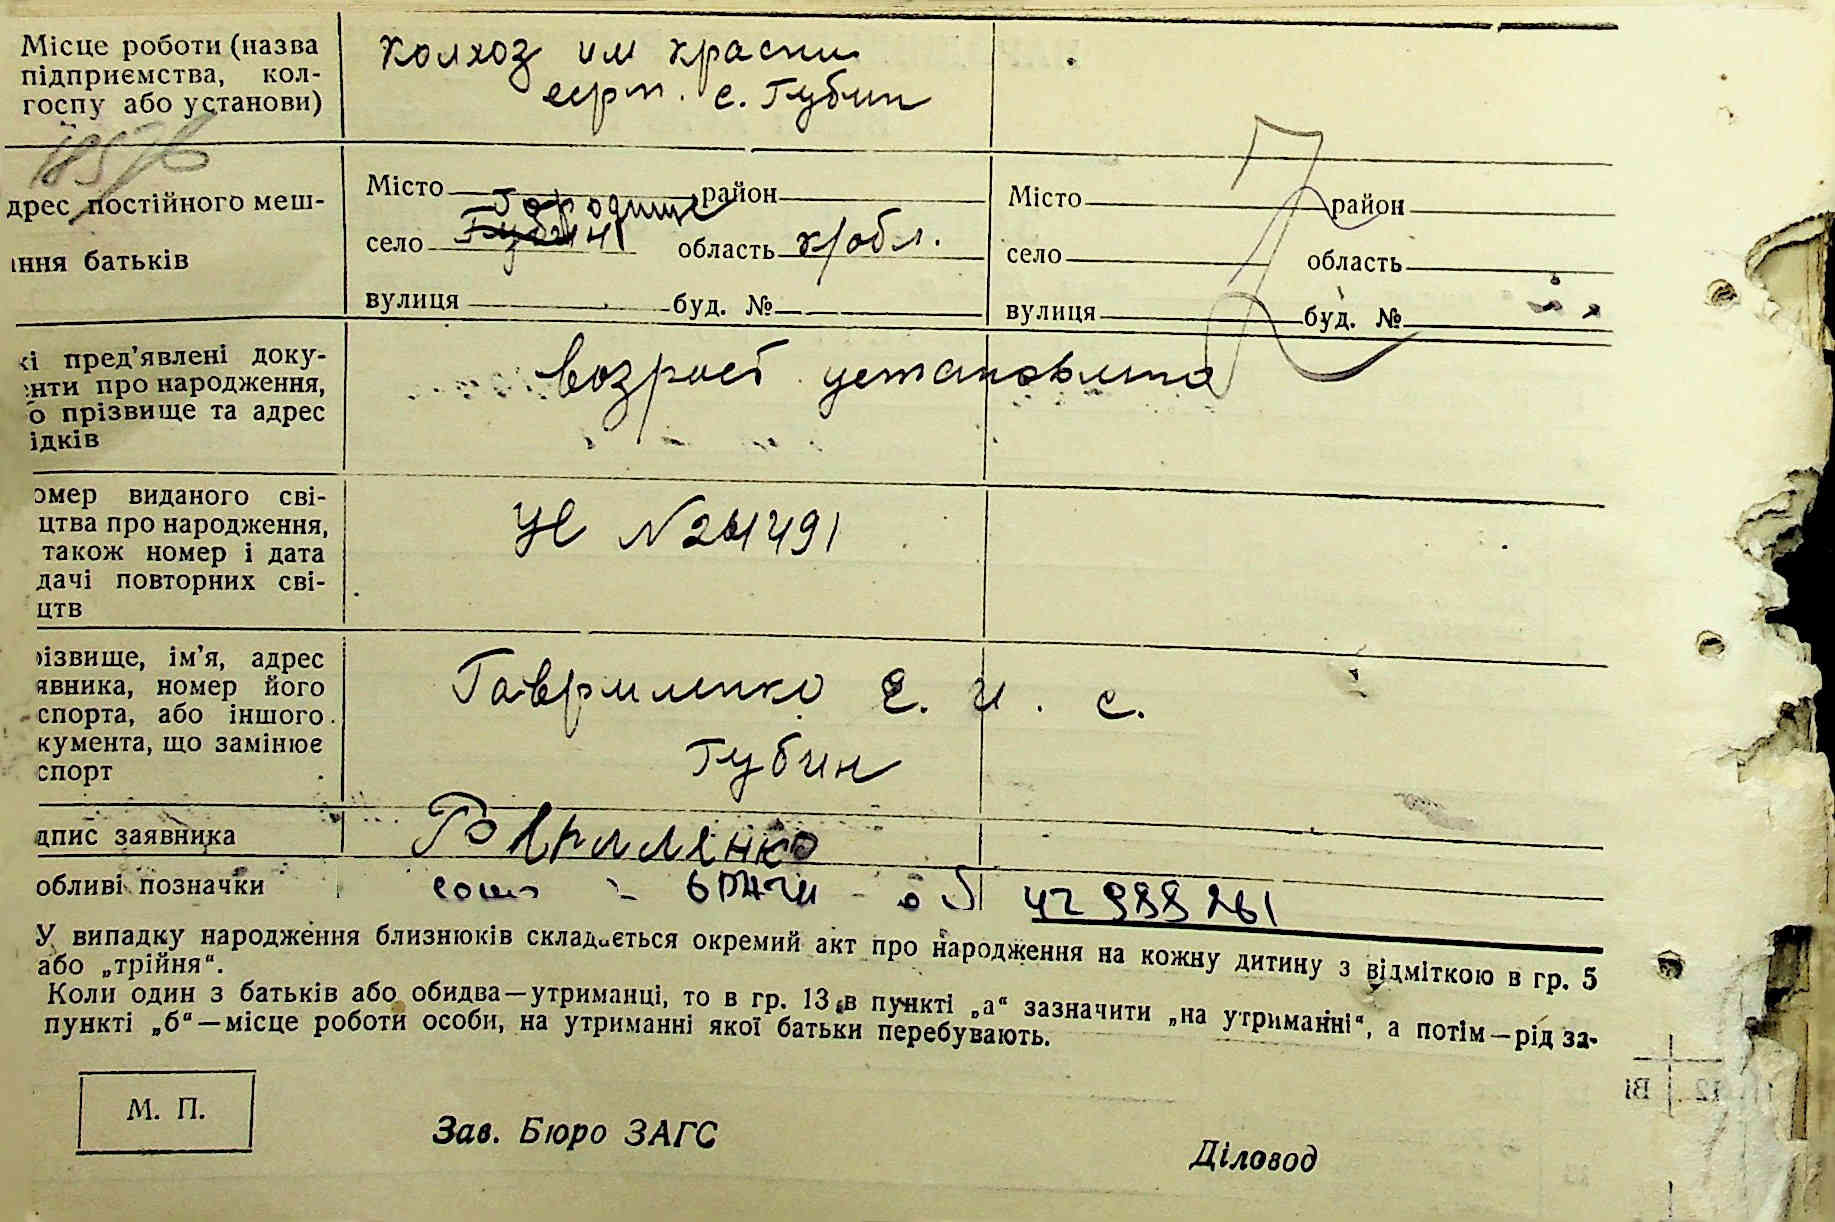 Місце роботи (назва
підприємства, кол-
госпу або установи)
колхоз им красни
серп. с. Губин
дрес постійного меш-
ння батьків
Місто район
Городище
село Губин область х/обл.
вулиця буд. №
Місто район
село область
вулиця буд. №
кі пред’явлені доку-
нти про народження,
о прізвище та адрес
ідків
возраст установлено
омер виданого сві-
цтва про народження,
також номер і дата
дачі повторних сві-
цтв
№
різвище, ім’я, адрес
явника, номер його
спорта, або іншого
кумента, що замінює
спорт
Гавриленко Е. И. с.
Губин
дпис заявника
Гавриленко
обливі позначки
У випадку народження близнюків складається окремий акт про народження на кожну дитину з відміткою в гр. 5
або „трійня“.
Коли один з батьків або обидва—утриманці, то в гр. 13 в пункті „а“ зазначити „на утриманні“, а потім—рід за-
пункті „б“—місце роботи особи, на утриманні якої батьки перебувають.
М. П.
Зав. Бюро ЗАГС
Діловод